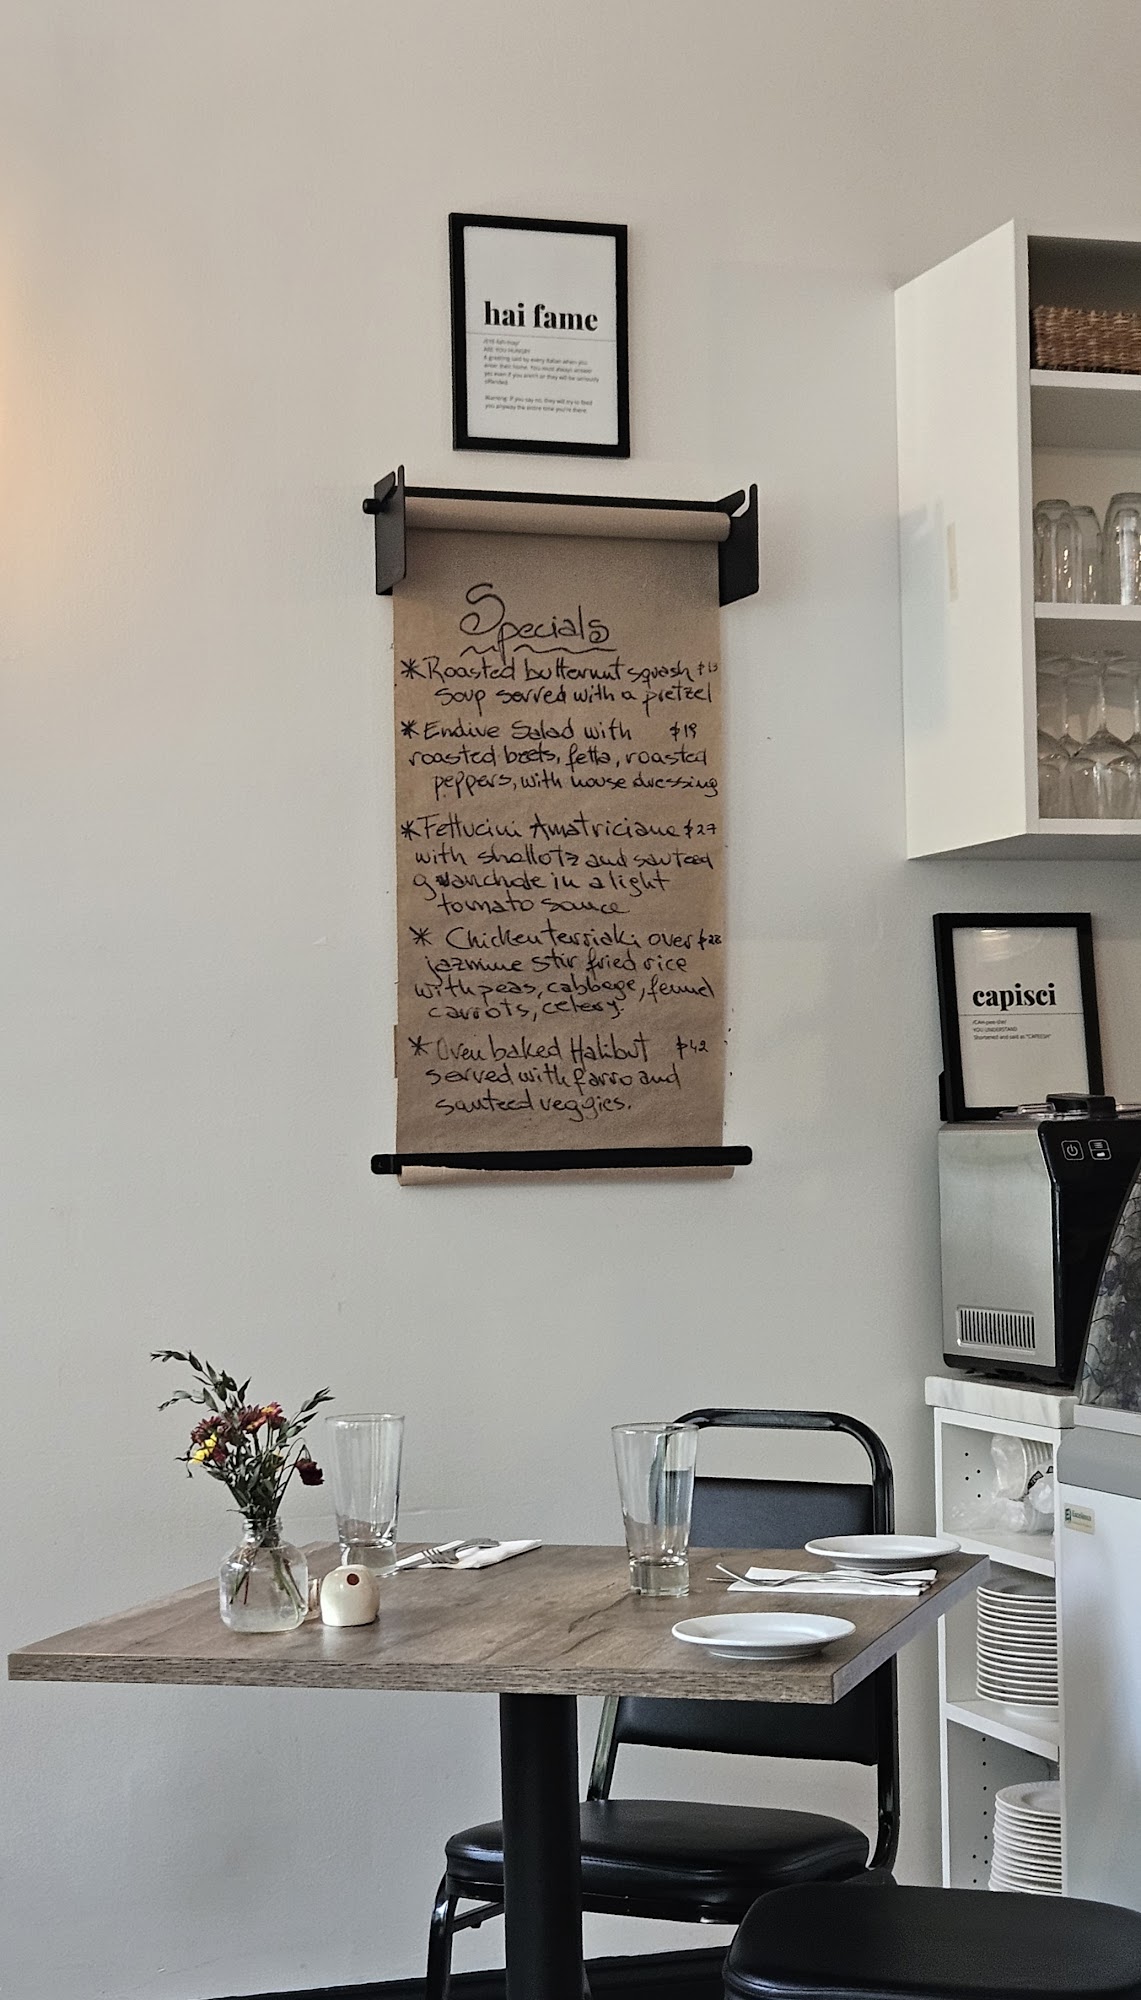 hai fame
ARE YOU HUNGRY
A greeting said by every Italian when you
enter their home. You must always answer
yes even if you aren't or they will be seriously
offended.
Warning: If you say no, they will try to feed
you anyway the entire time you're there.
Specials
*Roasted butternut squash $13
soup served with a pretzel
*Endive Salad with $19
roasted beets, fetta, roasted
peppers, with house dressing
*Fettucini Amatriciana $27
with shallots and sauteed
guanchale in a light
tomato sauce
* Chicken terriaki over $28
jazmine stir fried rice
with peas, cabbage, fennel
carrots, celery.
* Oven baked Halibut $42
served with farro and
sauteed veggies.
capisci
YOU UNDERSTAND
Shortened and said as "CAPEESH"